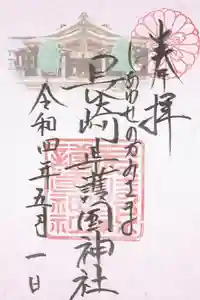 奉拝
しあわせのかみさま
長崎県護国神社
令和四年五月一日